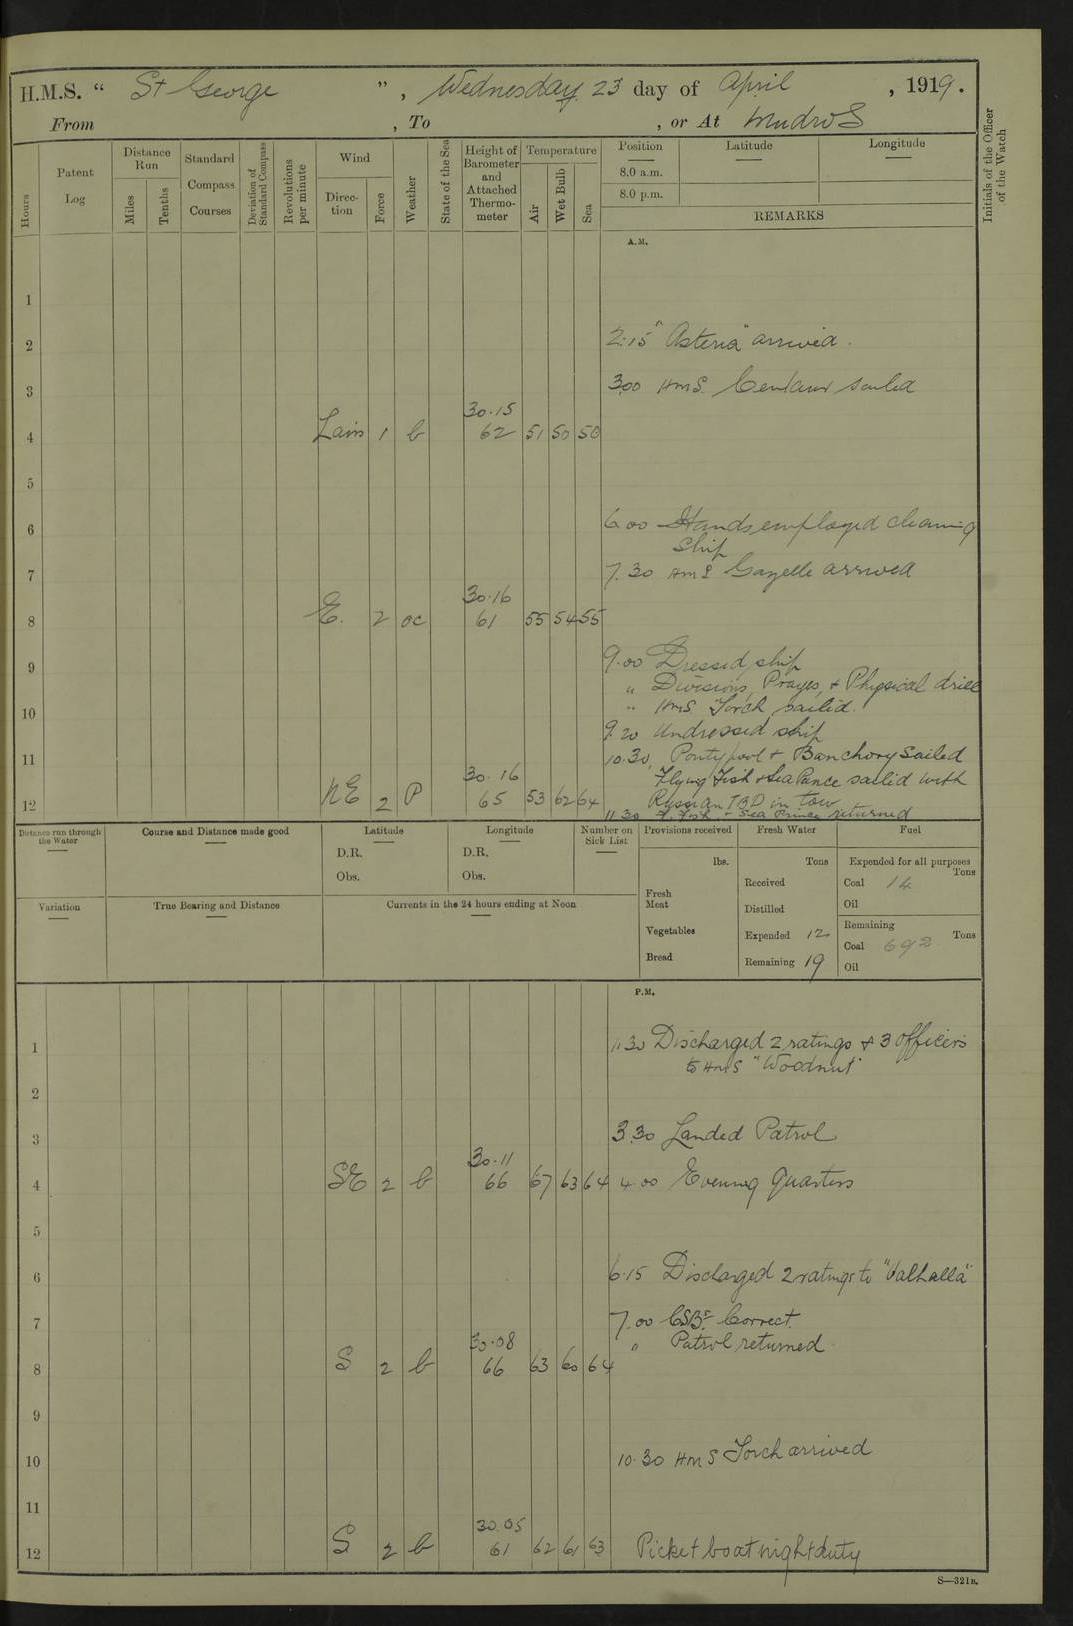 H.M.S. " St George ", Wednesday 23 day of April, 1919.
From , To , or At Mudros
Hours
Patent Log
Distance Run
Miles
Tenths
Standard Compass Courses
Deviation of Standard Compass
Revolutions per minute
Wind
Direction
Force
Weather
State of the Sea
Height of Barometer and Attached Thermometer
Temperature
Air
Wet Bulb
Sea
Position
8.0 a.m.
8.0 p.m.
Latitude
Longitude
REMARKS
Initials of the Officer of the Watch
A.M.
1
2 2.15 "Asteria" arrived.
3 3.00 HMS. Centaur sailed
30.15
4 1 b 62 51 50 50
5
6 6.00 Hands employed cleaning
ship
7 7.30 HMS Gazelle arrived
30.16
8 E. 2 oc 61 55 54 55
9 9.00 Dressed ship
" Divisions, Prayes, + Physical drill
10 " HMS Torch sailed.
9.20 Undressed ship
11 10.30, Pontypool + Banchory Sailed
30.16 Flying Fish + Sea Prince sailed with
12 NE 2 P 65 53 62 64 Russian TBD in tow
11.30 F. Fish + Sea Prince returned
Distance run through the Water
Course and Distance made good
Latitude
D.R.
Obs.
Longitude
D.R.
Obs.
Number on Sick List
Provisions received
lbs.
Fresh Meat
Vegetables
Bread
Fresh Water
Tons
Received
Distilled
Expended 12
Remaining 19
Fuel
Expended for all purposes
Tons
Coal 14
Oil
Remaining
Tons
Coal 692
Oil
Variation
True Bearing and Distance
Currents in the 24 hours ending at Noon
P.M.
1 1.30 Discharged 2 ratings & 3 Officers
to HMS "Woodnut"
2
3 3.30 Landed Patrol
30.11
4 SE 2 b 66 67 63 64 4.00 Evening Quarters
5
6 6.15 Discharged 2 ratings to "Valhalla"
7 7.00 CSBs. Correct.
30.08 " Patrol returned
8 S 2 b 66 63 60 64
9
10 10.30 HMS Torch arrived
11
30.05
12 S 2 b 61 62 61 63 Picket boat night duty
S—321B.